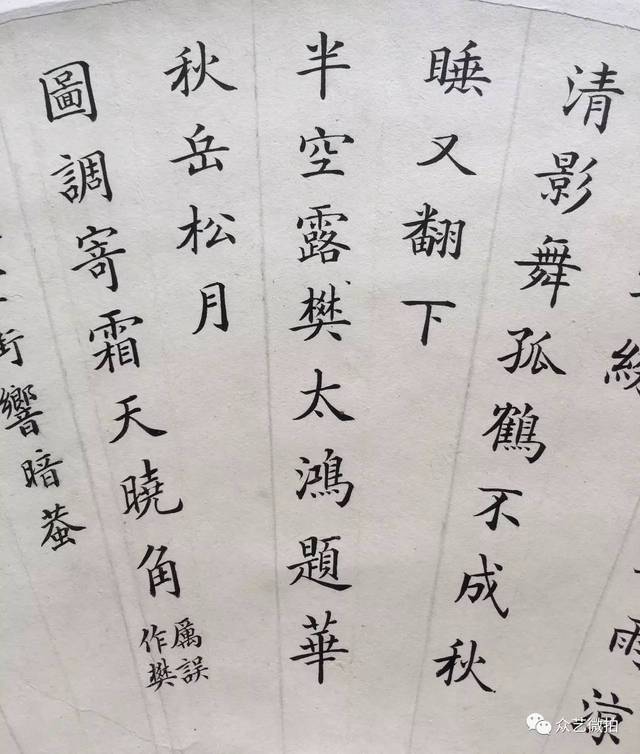 雨
清影舞孤鶴不成秋
睡又翻下
半空露樊太鴻題華
秋岳松月
圖調寄霜天曉角
厲誤
作樊
響暗
众艺微拍